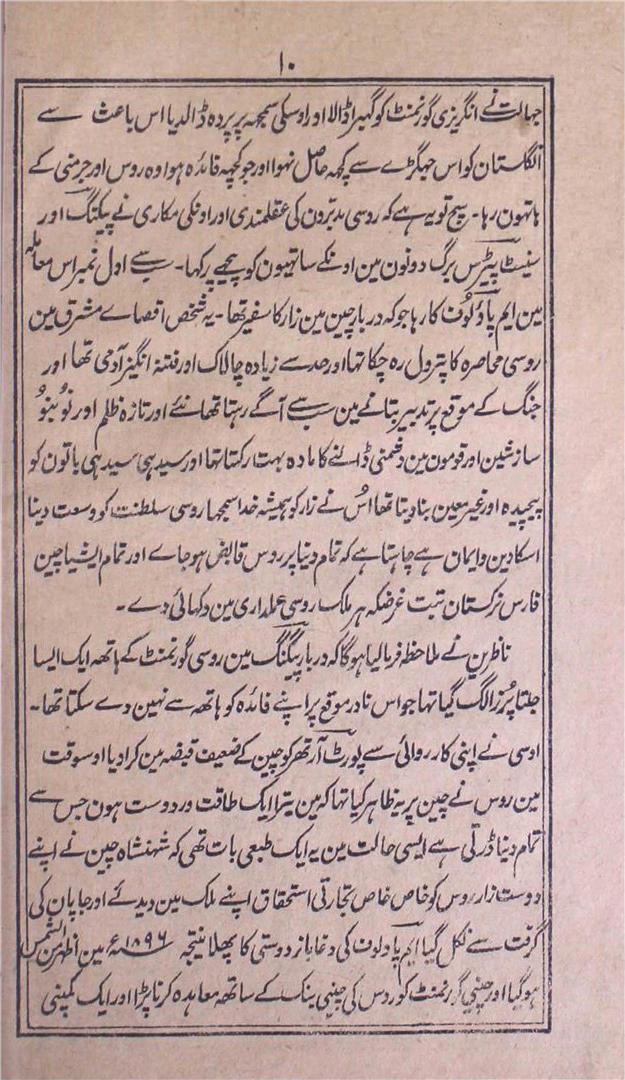 ۱۰
جہالت نے انگریزی گورنمنٹ کو گھیر اڈالا اور اوسکی سمجھہ پر پردہ ڈالدیا اس باعث سے
انگلستان کو اس جھگڑے سے کچھہ حاصل نہوا اور جو کچھہ فائدہ ہوا وہ روس اور جرمنی کے
ہاتھون رہا۔ سچ تو یہ ہے کہ روسی مدبّرون کی عقلمندی اور اونکی مکاری نے پیکنگ اور
سینٹ پیٹرس برگ دونون مین اونکے ساتھیون کو پیچھے رکھا۔ سب سے اول نمبر اس معاملہ
مین ایم پاؤلوُف کا رہا جو کہ دربار چین مین زار کا سفیر تھا۔ یہ شخص اقصاے مشرق مین
روسی محاصرہ کا پترول رہ چکا تھا اور حد سے زیادہ چالاک اور فتنہ انگیز آدمی تھا اور
جنگ کے موقع پر تدبیر بتانے مین سب سے آگے رہتا تھا نئے اور تازہ ظلم اور نوُ بنوُ
سازشین اور قومون مین دشمنی ڈالنے کا مادہ بہت رکھتا تھا اور سیدہی سیدہی باتون کو
پیچیدہ اور غیر معین بنا دیتا تھا اُس نے زار کو ہمیشہ خدا سمجھا روسی سلطنت کو وسعت دینا
اسکا دین و ایمان ہے چاہتا ہے کہ تمام دنیا پر روس قابض ہو جاے اور تمام ایشیا چین
فارس ترکستان تبت غرضکہ ہر ملک روسی عملداری مین دکھائی دے۔
ناظرین نے ملاحظہ فرما لیا ہوگا کہ دربار پیکنگ مین روسی گورنمنٹ کے ہاتھہ ایک ایسا
چلتا پُرزا لگ گیا تھا جو اس نادر موقع پر اپنے فائدہ کو ہاتھہ سے نہین دے سکتا تھا۔
اوسی نے اپنی کارروائی سے پورٹ آرتھر کو چین کے ضعیف قبضہ مین کرا دیا اوسوقت
مین روس نے چین پر یہ ظاہر کیا تھا کہ مین تیرا ایک طاقت ور دوست ہون جس سے
تمام دنیا ڈرتی ہے ایسی حالت مین یہ ایک طبعی بات تھی کہ شہنشاہ چین نے اپنے
دوست زار روس کو خاص خاص تجارتی استحقاق اپنے ملک مین دیدئے اور جاپان کی
گرفت سے نکل گیا ایم پاولوف کی دغا باز دوستی کا پھلا نتیجہ ۱۸۹۶ء مین اظہر من الشمس
ہو گیا اور چینی گورنمنٹ کو روس کی چینی بنک کے ساتھہ معاہدہ کرنا پڑا اور ایک کمپنی